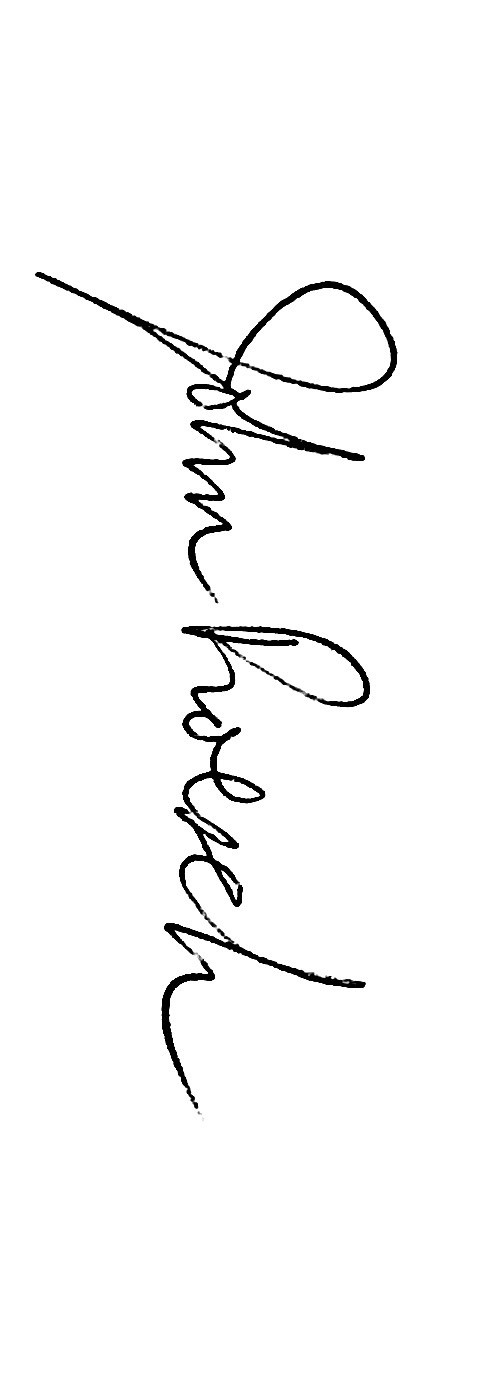 John Roesch